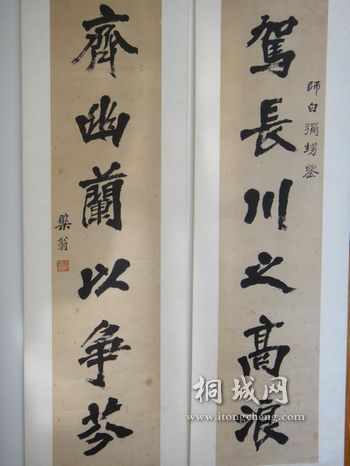 駕長川之高浪
師白彌甥鑒
齊幽蘭以爭芬
槃翁
桐城网
www.itongcheng.com